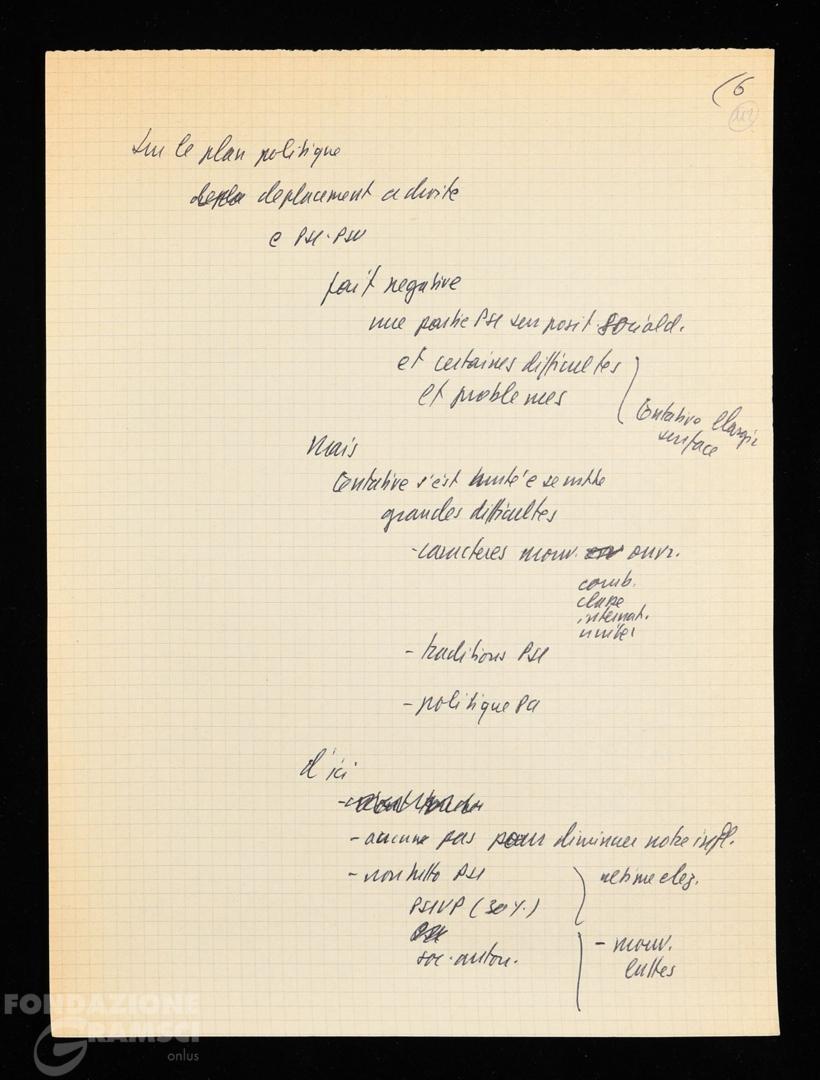 (6
212
Sur le plan politique
deplacement a droite
e PSI-PSU
fait negative
une partie PSI sur posit. sociald.
et certaines difficultes
et problemes
tentative elargir
surface
Mais
tentative s'est
grandes difficultes
- caracteres mouv. ouvr.
comb.
classe
internat.
unités
- traditions PSI
- politique PCI
d'ici
- aucune pas pour diminuer notre infl.
- non tutto PSI
ultime elez.
PSIUP (30%)
soc. auton.
- mouv.
luttes
FONDAZIONE
GRAMSCI
onlus